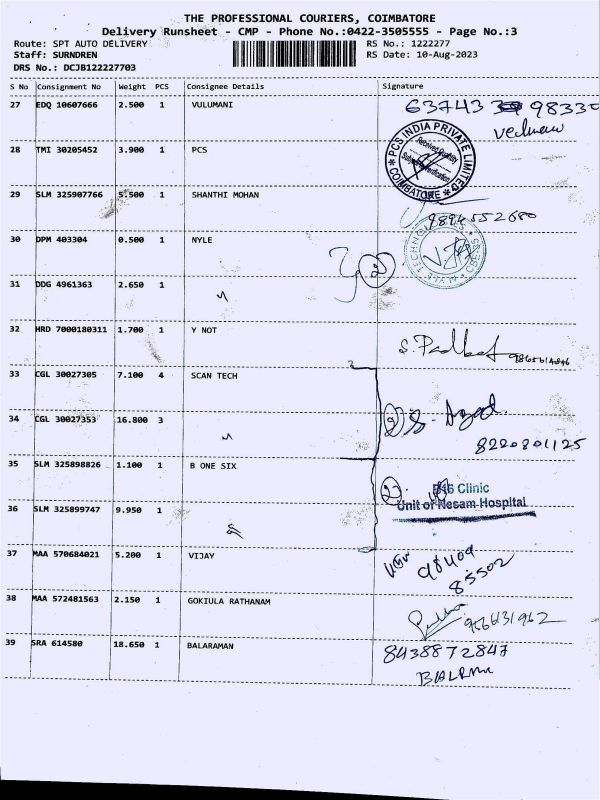 THE PROFESSIONAL COURIERS, COIMBATORE
Delivery Runsheet - CMP - Phone No.:0422-3505555 - Page No.:3
Route: SPT AUTO DELIVERY RS No.: 1222277
Staff: SURNDREN RS Date: 10-Aug-2023
DRS No.: DCJB122227703
S No Consignment No Weight PCS Consignee Details Signature
27 EDQ 10607666 2.500 1 VULUMANI 63743 98330
28 TMI 30205452 3.900 1 PCS
PCS INDIA PRIVATE LIMITED
COIMBATORE
29 SLM 325907766 5.500 1 SHANTHI MOHAN
9894552680
30 DPM 403304 0.500 1 NYLE
2
31 DDG 4961363 2.650 1
32 HRD 7000180311 1.700 1 Y NOT
33 CGL 30027305 7.100 4 SCAN TECH
34 CGL 30027353 16.800 3
S. Azad
8220801125
35 SLM 325898826 1.100 1 B ONE SIX
B16 Clinic
36 SLM 325899747 9.950 1 Unit of Nesam Hospital
37 MAA 570684021 5.200 1 VIJAY
85502
38 MAA 572481563 2.150 1 GOKIULA RATHANAM
39 SRA 614580 18.650 1 BALARAMAN 8438872847